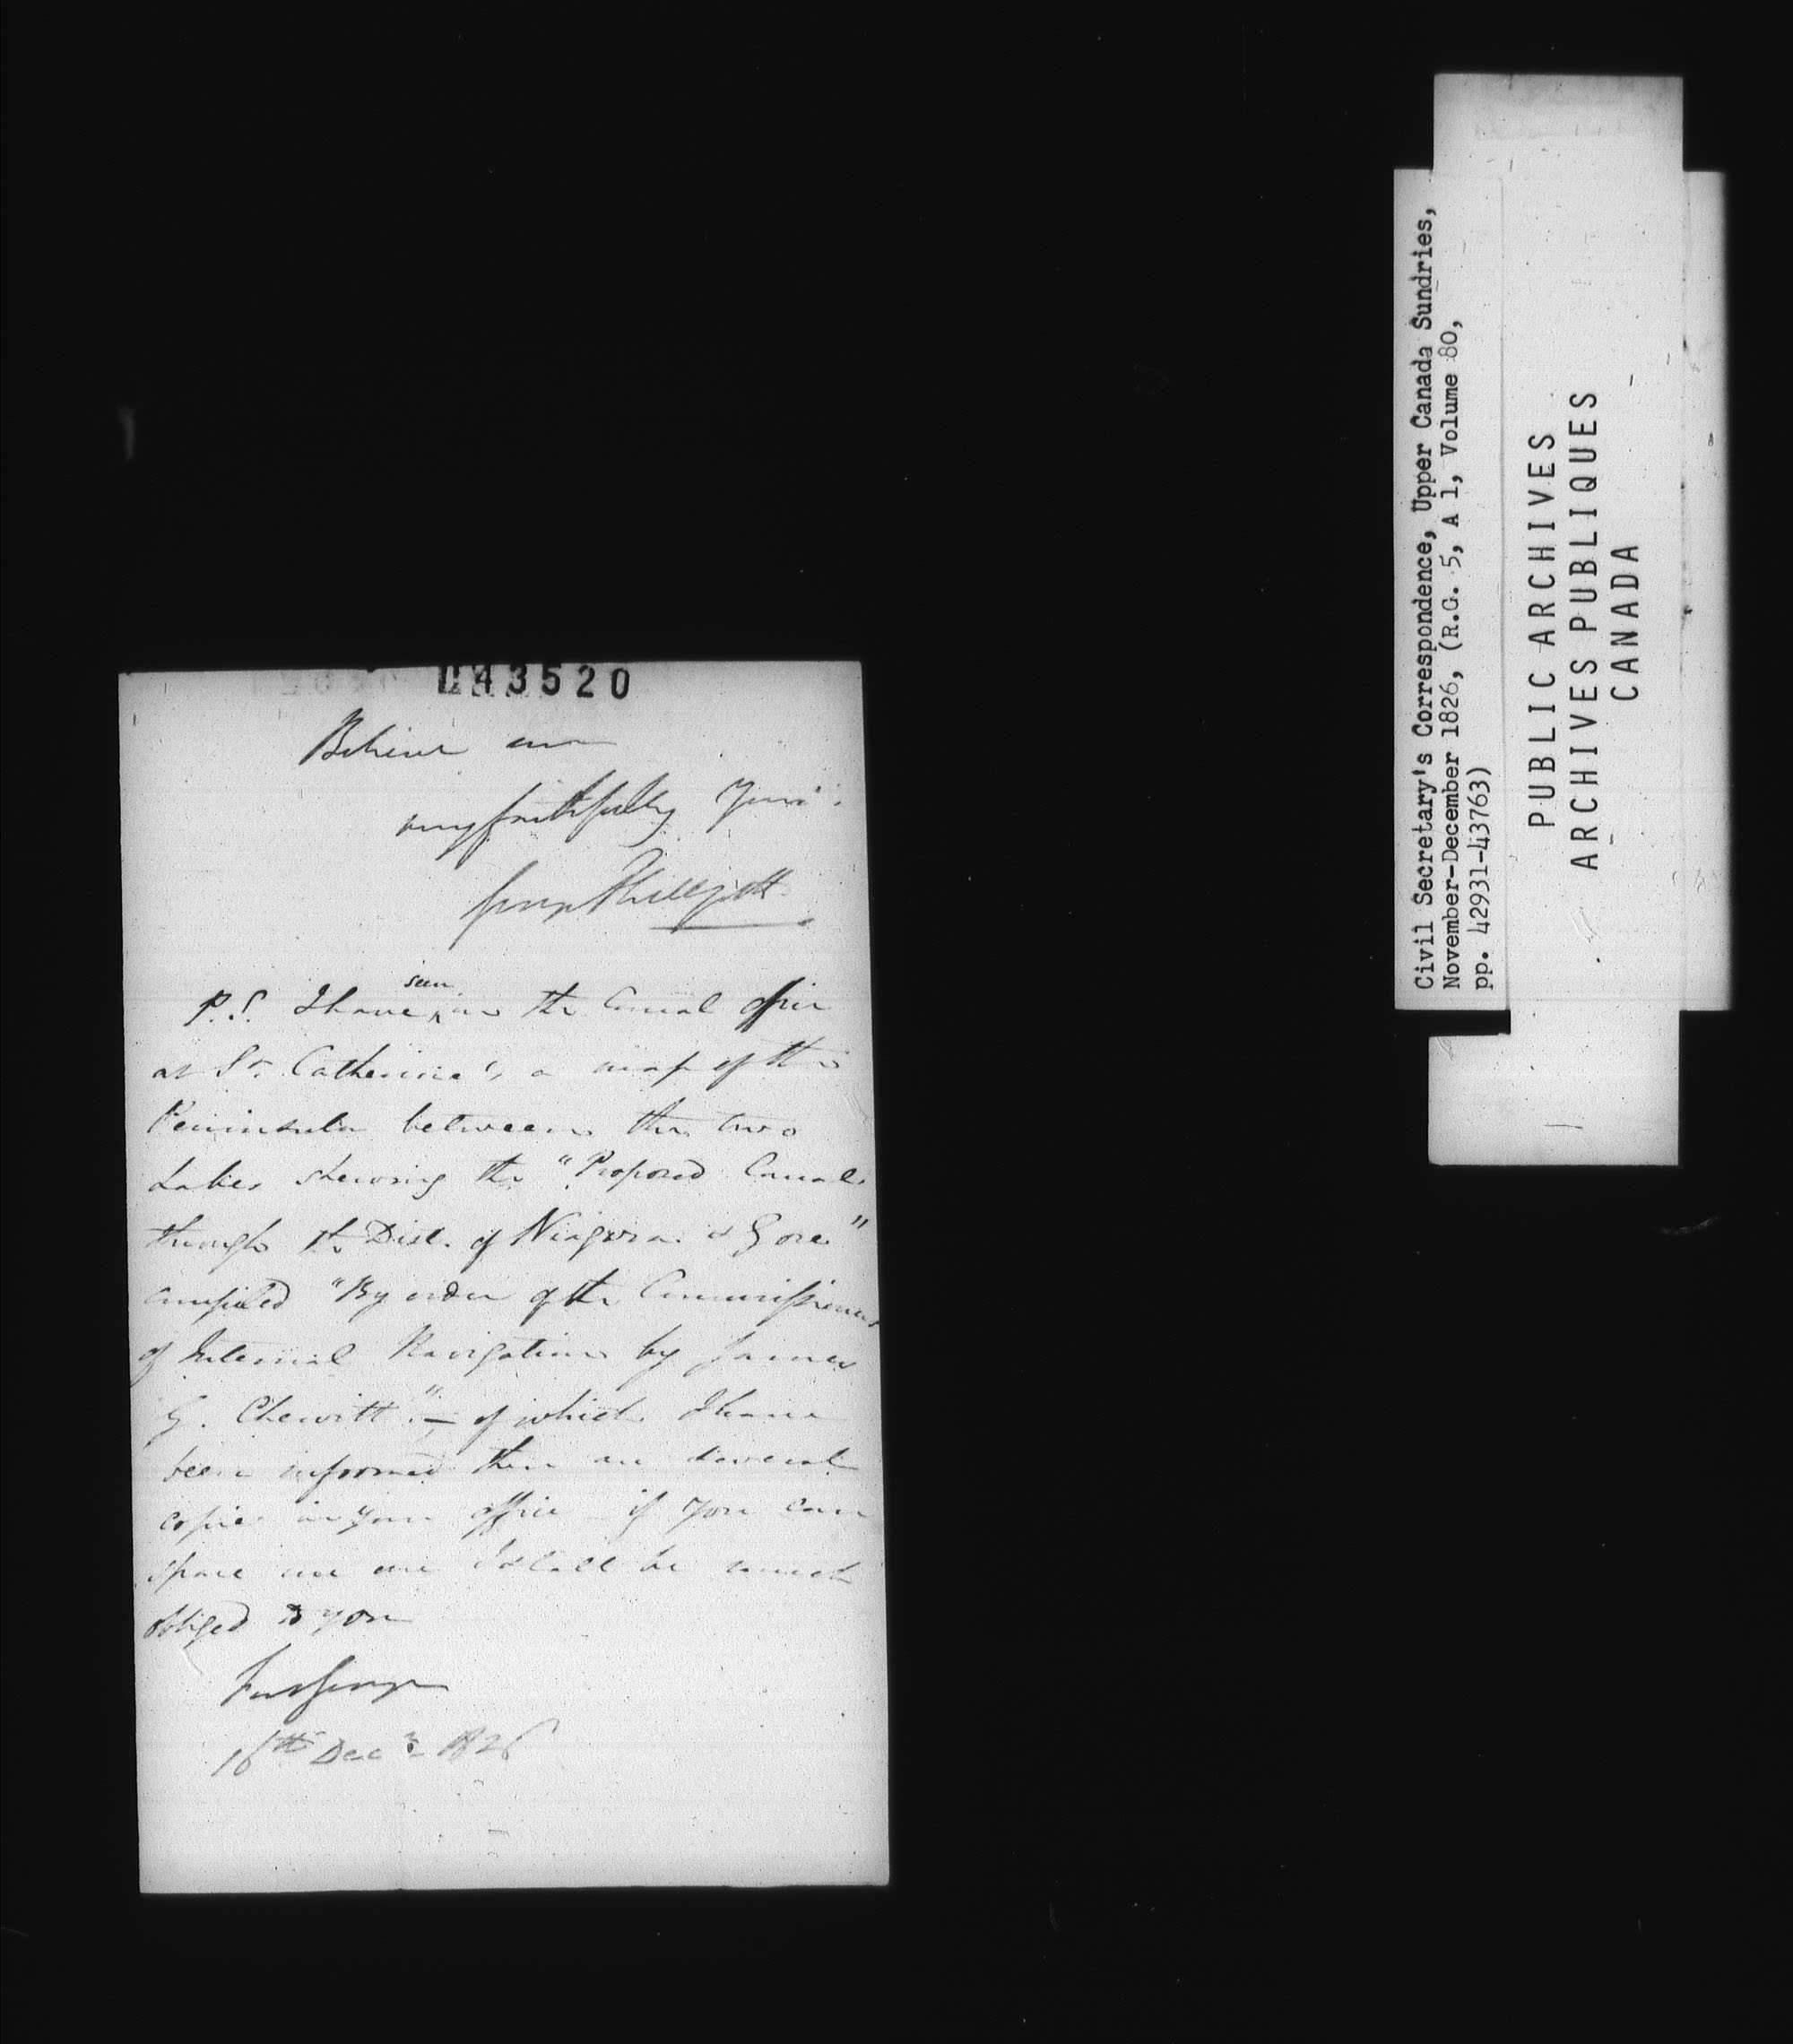 043520
Believe me
very faithfully Yours
George Phillpotts
P.S. I have seen in the Canal office
at St. Catherine's, a map of the
Peninsula between the two
Lakes shewing the "Proposed Canal
through the Dist. of Niagara & Gore"
compiled "By order of the Commissioners
of Internal Navigation by James
G. Chewitt". — of which I have
been informed there are several
copies in your office - if you can
spare me one I shall be much
obliged to you
Fort George
16th Decr 1826
Civil Secretary's Correspondence, Upper Canada Sundries,
November-December 1826, (R.G. 5, A 1, Volume 80,
pp. 42931-43763)
PUBLIC ARCHIVES
ARCHIVES PUBLIQUES
CANADA